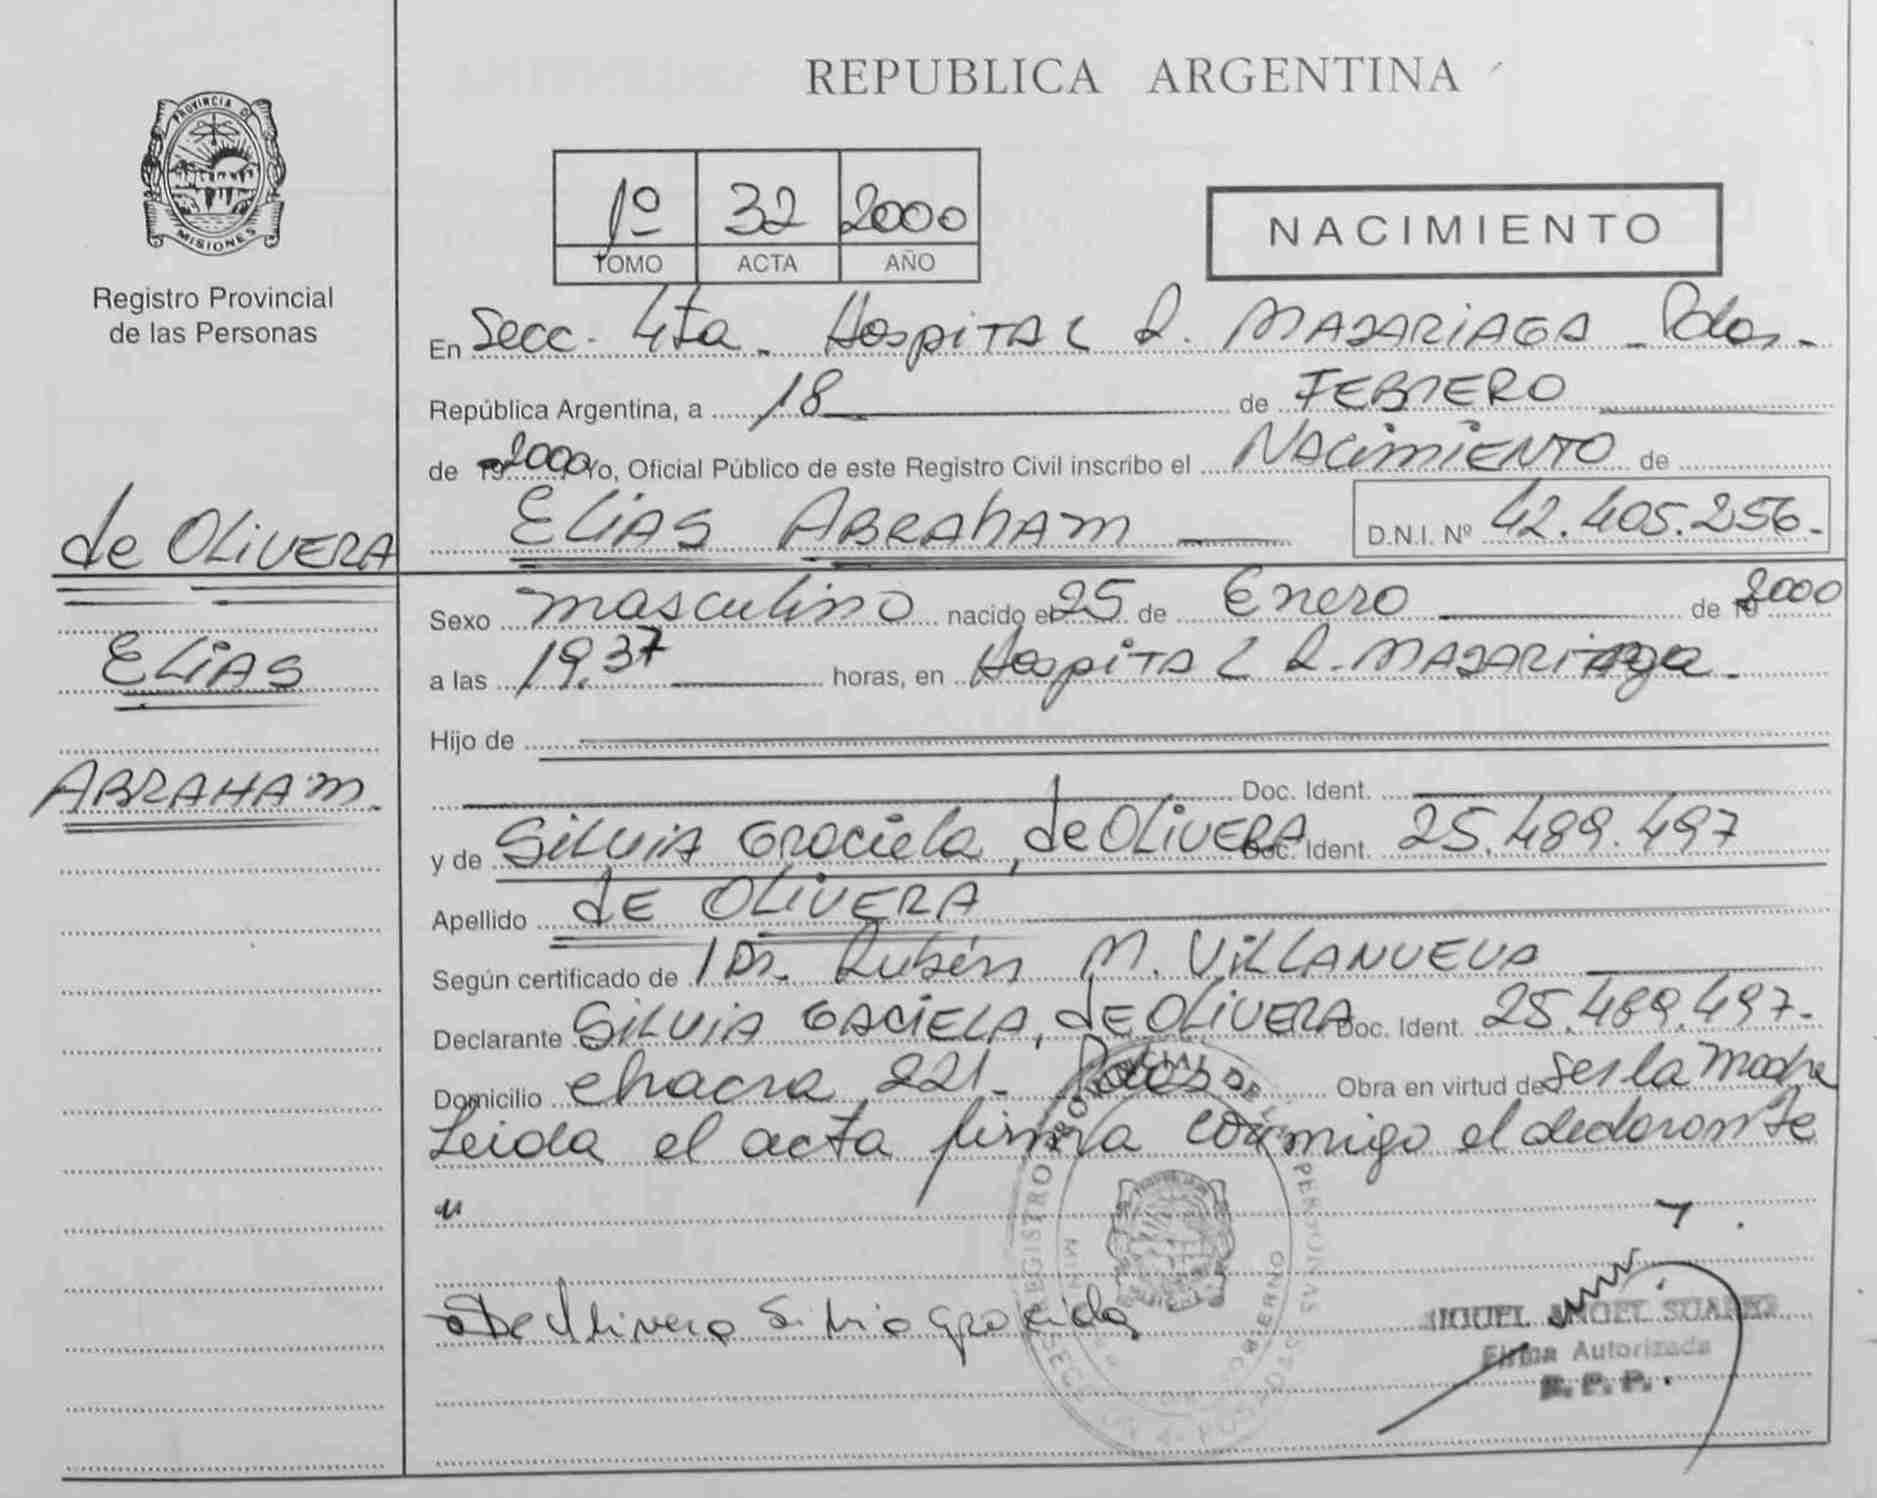 REPUBLICA ARGENTINA
PROVINCIA DE
MISIONES
Registro Provincial
de las Personas
1º 32 2000
TOMO ACTA AÑO
NACIMIENTO
En Secc. 4ta - Hospital R. MADARIAGA - Pdas. -
República Argentina, a 18 de FEBRERO
de 2000 Yo, Oficial Público de este Registro Civil inscribo el NACIMIENTO de
ELIAS ABRAHAM D.N.I. Nº 42.405.256.-
de OLIVERA
ELIAS
ABRAHAM.
Sexo masculino nacido el 25 de Enero de 2000
a las 19,37 horas, en Hospital R. MADARIAga -
Hijo de
Doc. Ident.
y de SILVIA Graciela, de OLIVERA Doc. Ident. 25.489.497
Apellido de OLIVERA
Según certificado de Dr. Rubén M. VILLANUEVA
Declarante SILVIA GACIELA, dE OLIVERA Doc. Ident. 25.489.497.-
Domicilio chacra 221 - Pdas Obra en virtud de Ser la Madre
Leida el acta firma conmigo el declarante
De Olivera Silvia graciela
MIGUEL ANGEL SUAREZ
Firma Autorizada
R. P. P.